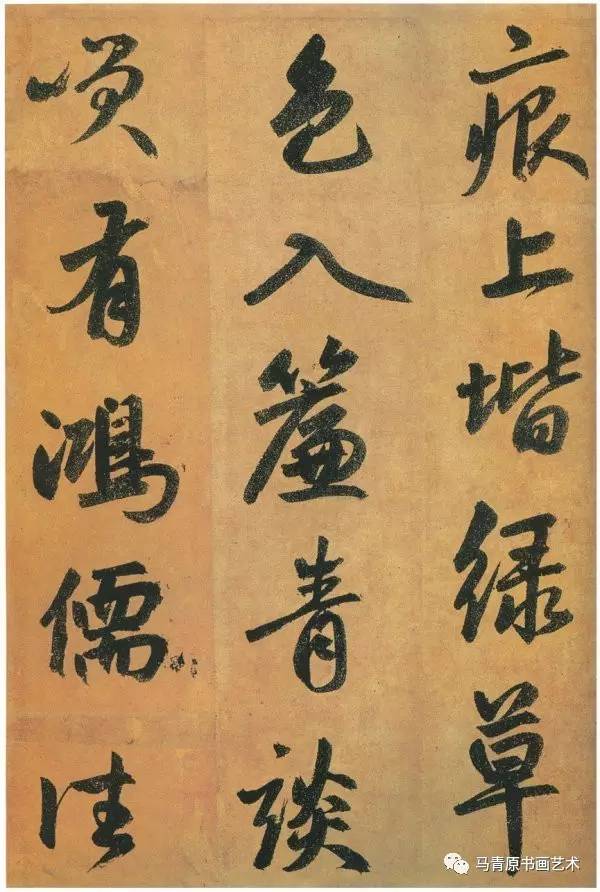 痕上堦绿草
色入簾青談
咲有鴻儒往
马青原书画艺术